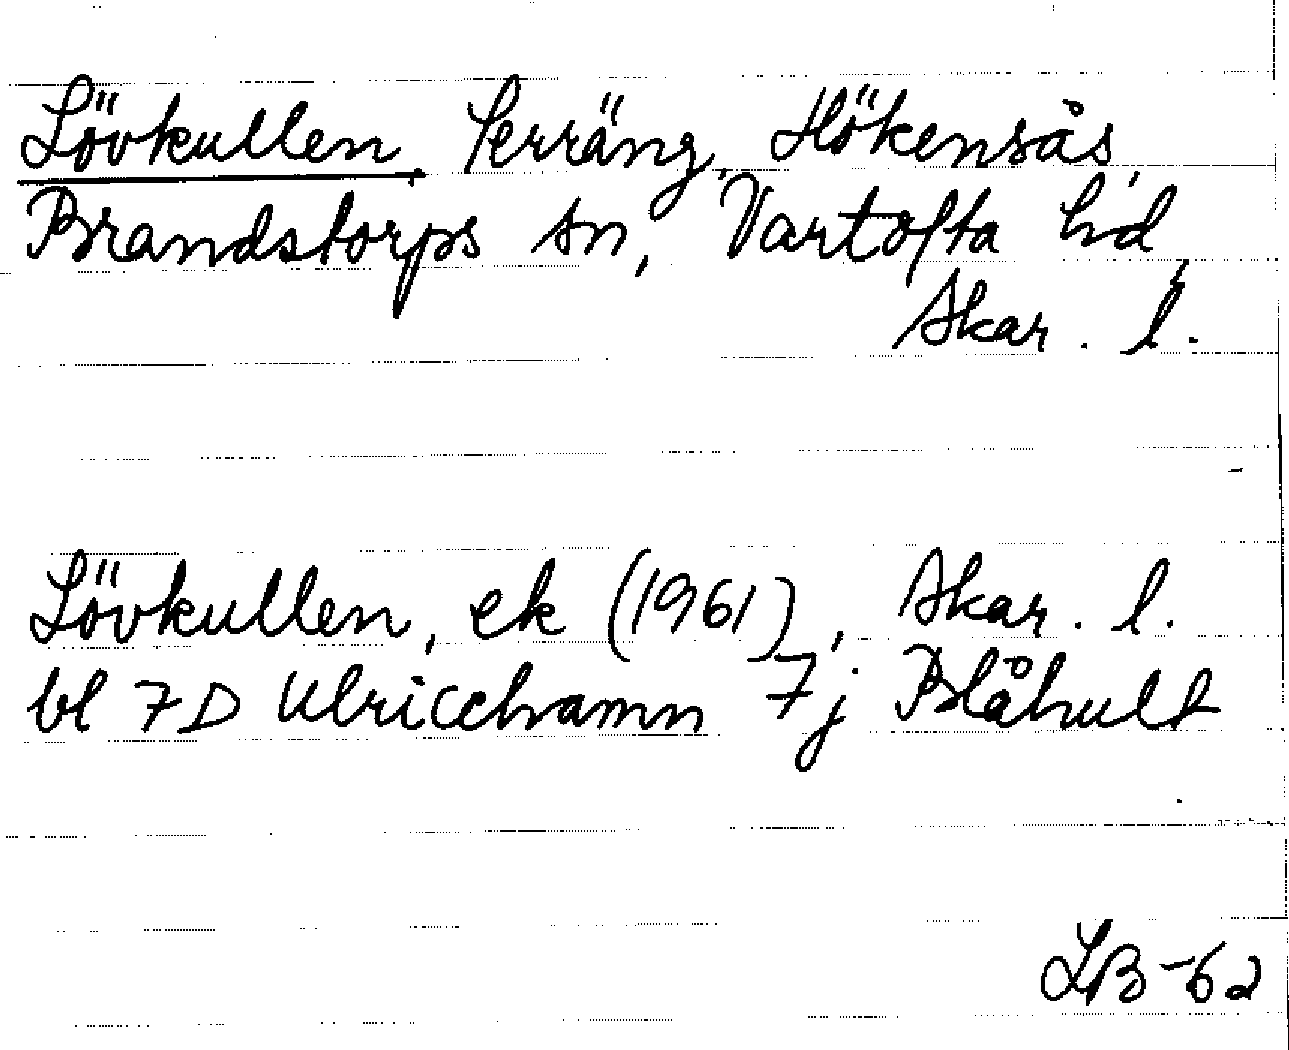 Lövkullen, Terräng, Hökensås,
Brandstorps sn, Vartofta hd
Skar. l.
Lövkullen, ek (1961), Skar. l.
bl 7D Ulricehamn 7j Blåhult
LB-62